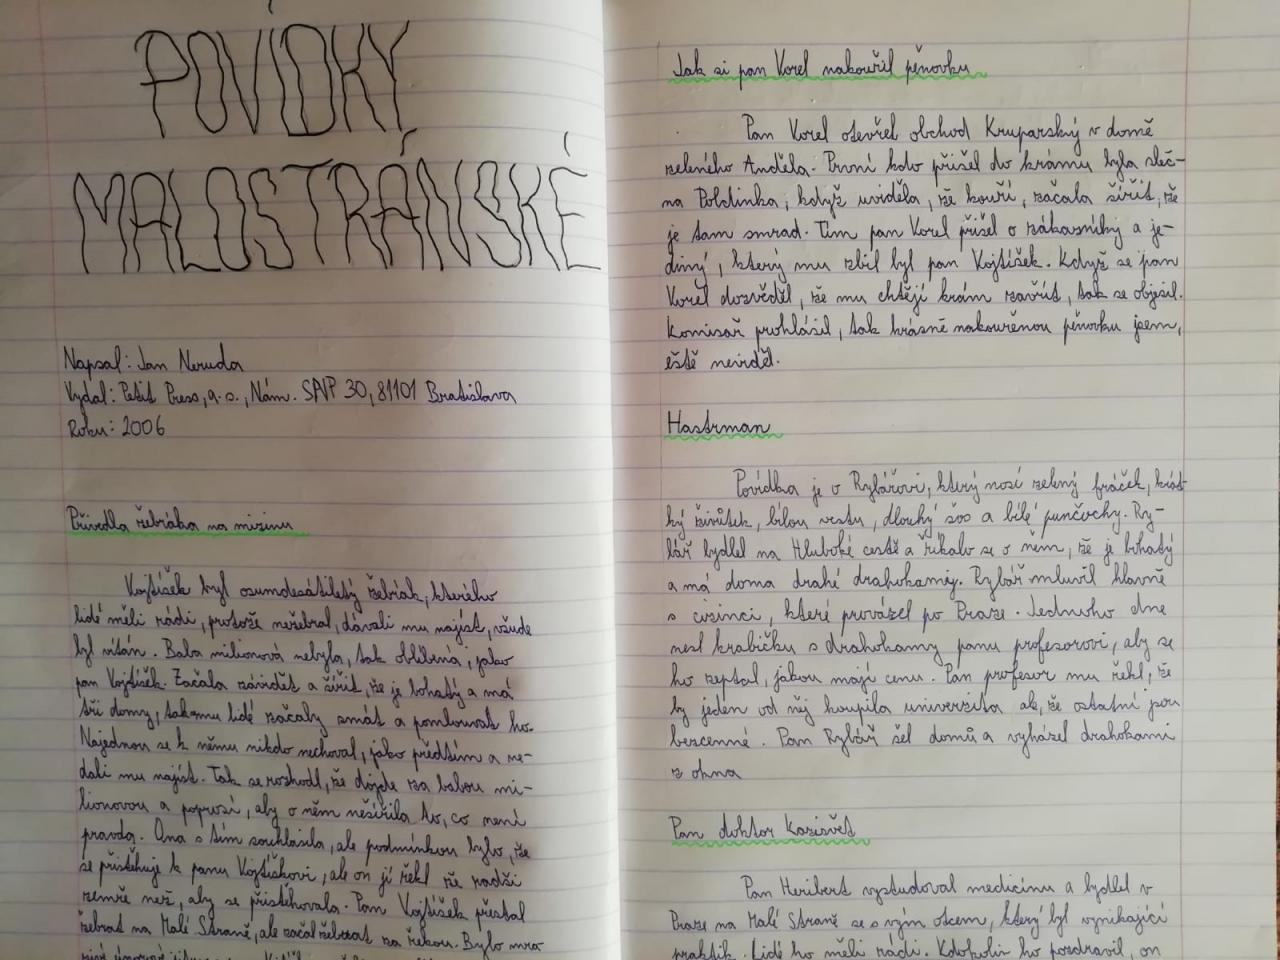 POVÍDKY
MALOSTRÁNSKÉ
Napsal: Jan Neruda
Vydal: Petit Press, a.s., Nám. SNP 30, 81101 Bratislava
Roku: 2006
Přivedla žebráka na mizinu
Vojtíšek byl osumdesátiletý žebrák, kterého
lidé měli rádi, protože nežebral, dávali mu najíst, všude
byl vítán. Baba milionová nebyla, tak oblíbená, jako
pan Vojtíšek. Začala závidět a šířit, že je bohatý a má
tři domy, tak mu lidé začaly smát a pomlouvat ho.
Najednou se k němu nikdo nechoval, jako předtím a ne-
dali mu najíst. Tak se rozhodl, že dojde za babou mi-
lionovou a poprosí, aby o něm nešířila to, co není
pravda. Ona s tím souhlasila, ale podmínkou bylo, že
se přistěhuje k panu Vojtíškovi, ale on jí řekl že radši
zemře než, aby se přistěhovala. Pan Vojtíšek přestal
žebrat na Malé Straně, ale začal žebrat za řekou. Bylo mra-
Jak si pan Vorel nakouřil pěnovku
Pan Vorel otevřel obchod Kruparský v domě
zeleného Anděla. První kdo přišel do krámu byla sleč-
na Poldinka, když uviděla, že kouří, začala šířit, že
je tam smrad. Tím pan Vorel přišel o zákazníky a je-
diný, který mu zbil byl pan Vojtíšek. Když se pan
Vorel dozvěděl, že mu chtějí krám zavřít, tak se oběsil.
Komisař prohlásil, tak krásně nakouřenou pěnovku jsem,
eště neviděl.
Hastrman
Povídka je o Rybářovi, který nosí zelený fráček, krát-
ký živůtek, bílou vestu, dlouhý šos a bílé punčochy. Ry-
bář bydlel na Hluboké cestě a říkalo se o něm, že je bohatý
a má doma drahé drahokamy. Rybář mluvil hlavně
s cizinci, které provázel po Praze. Jednoho dne
nesl krabičku s drahokamy panu profesorovi, aby se
ho zeptal, jakou mají cenu. Pan profesor mu řekl, že
by jeden od něj koupila univerzita ale, že ostatní jsou
bezcenné. Pan Rybář šel domů a vyházel drahokami
z okna
Pan doktor Kazisvět
Pan Heribert vystudoval medicínu a bydlel v
Praze na Malé Straně se svým otcem, který byl vynikající
praktik. Lidé ho měli rádi. Kdokolin ho pozdravil, on